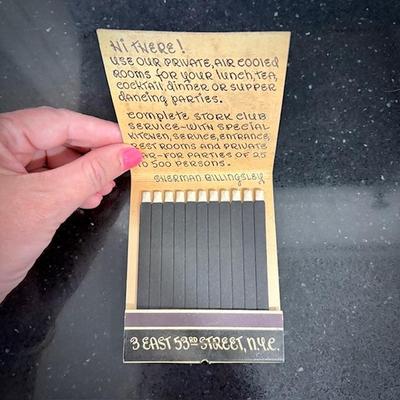 Hi THERE!
USE OUR PRIVATE, AIR COOLED
ROOMS FOR YOUR LUNCH, TEA,
COCKTAIL, DINNER OR SUPPER
DANCING PARTIES.
COMPLETE STORK CLUB
SERVICE-WITH SPECIAL
KITCHEN, SERVICE, ENTRANCE,
REST ROOMS AND PRIVATE
BAR-FOR PARTIES OF 25
TO 500 PERSONS.
SHERMAN BILLINGSLEY
3 EAST 53RD STREET, N.Y.C.